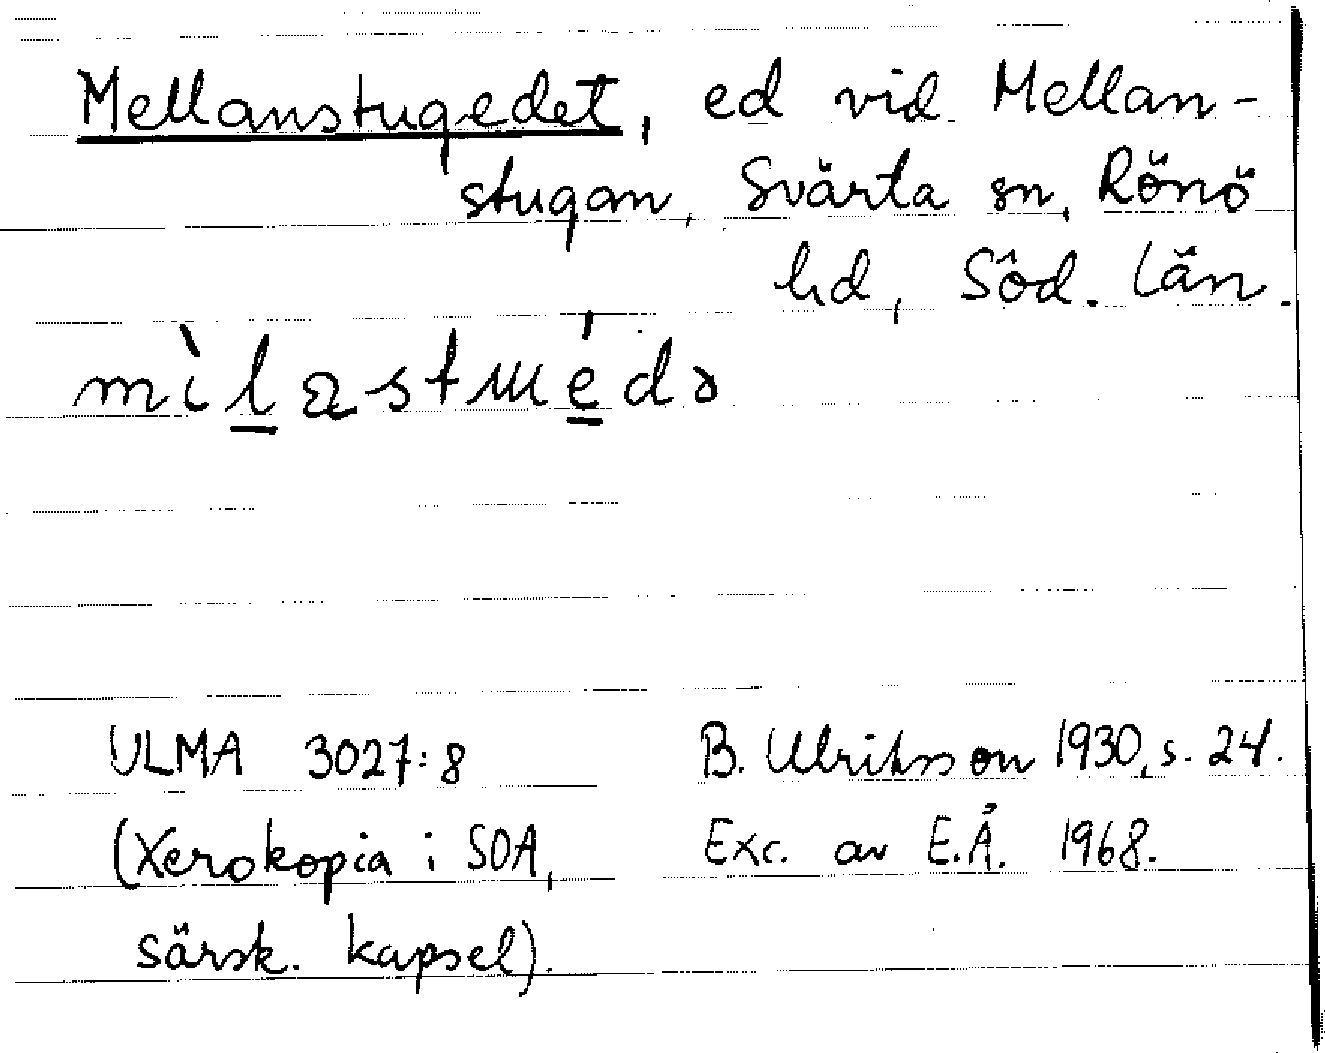 Mellanstugedet, ed vid Mellan-
stugan, Svärta sn, Rönö
hd, Söd. län.
mìlastɯédə
ULMA 3027:8 B. Ulriksson 1930, s. 24.
(Xerokopia i SOA, Exc. av E.Å. 1968.
särsk. kapsel).